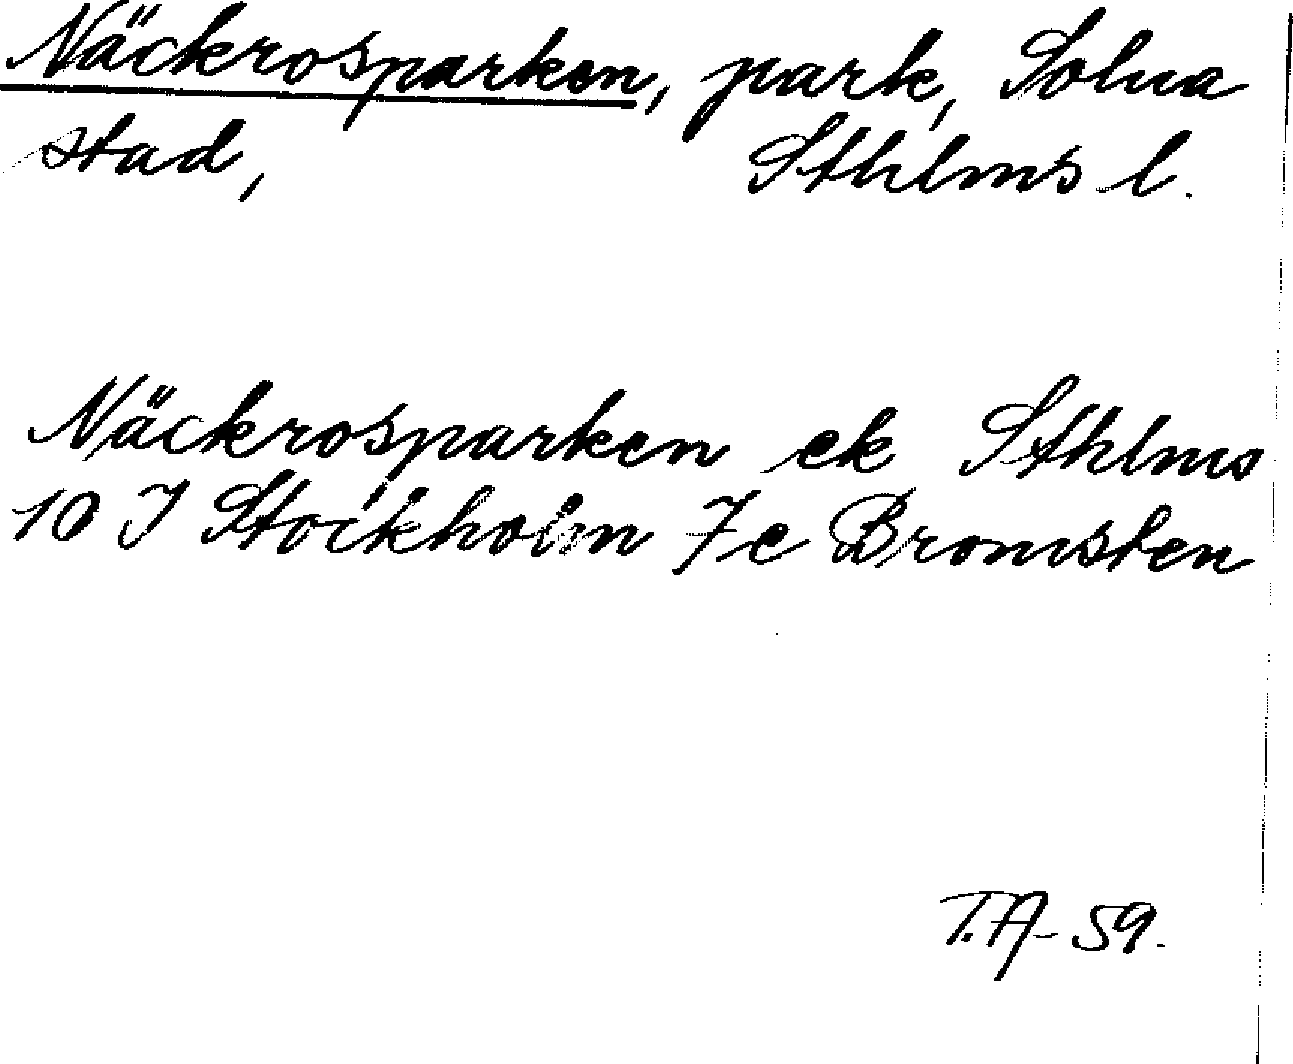 Näckrosparken, park, Solna
stad, Sthlms l.
Näckrosparken ek Sthlms
10 I Stockholm 7e Bromsten
T.A-59.